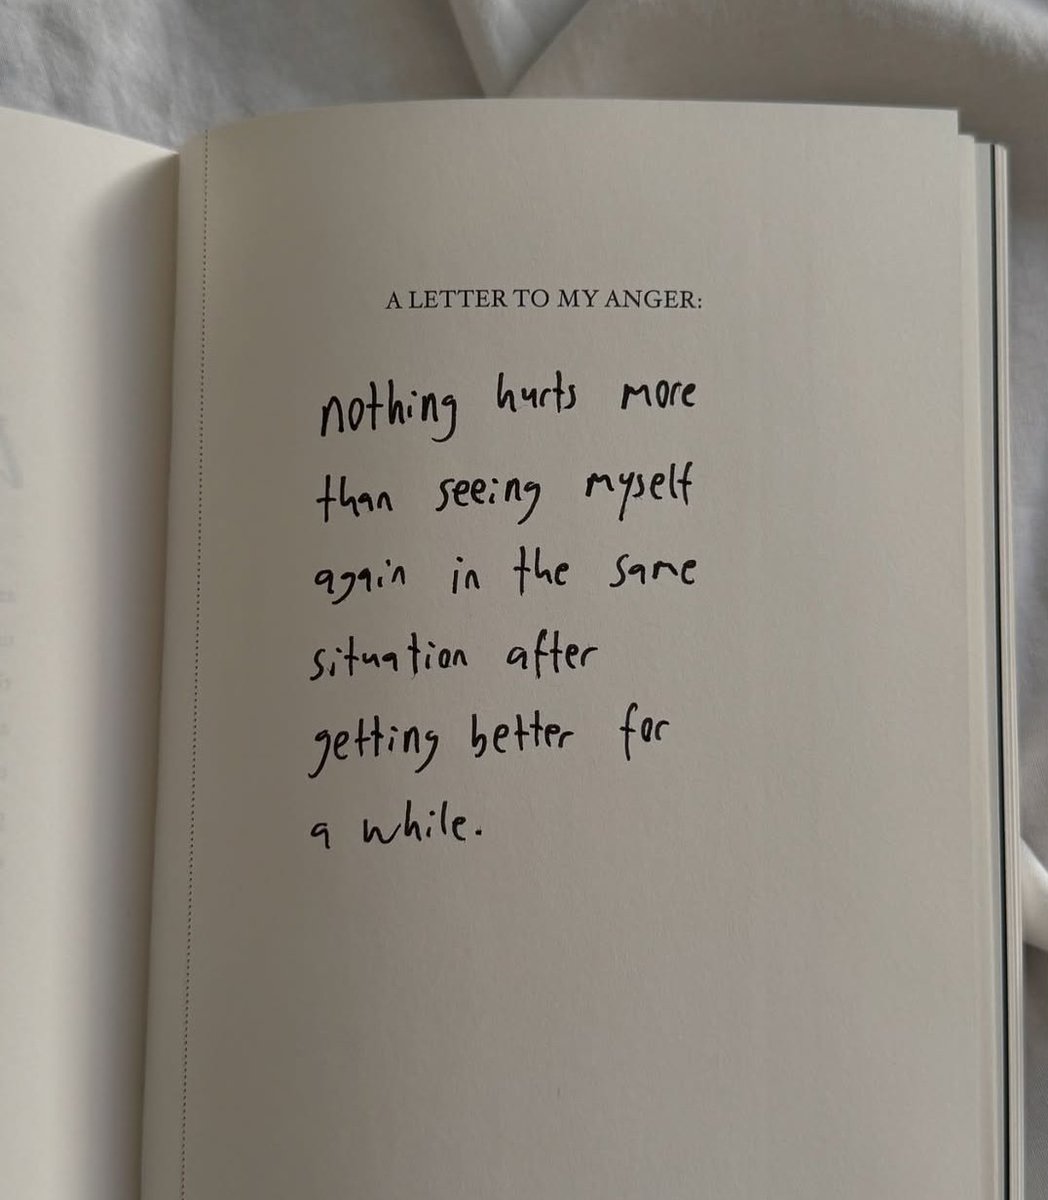 A LETTER TO MY ANGER:
nothing hurts more
than seeing myself
again in the same
situation after
getting better for
a while.